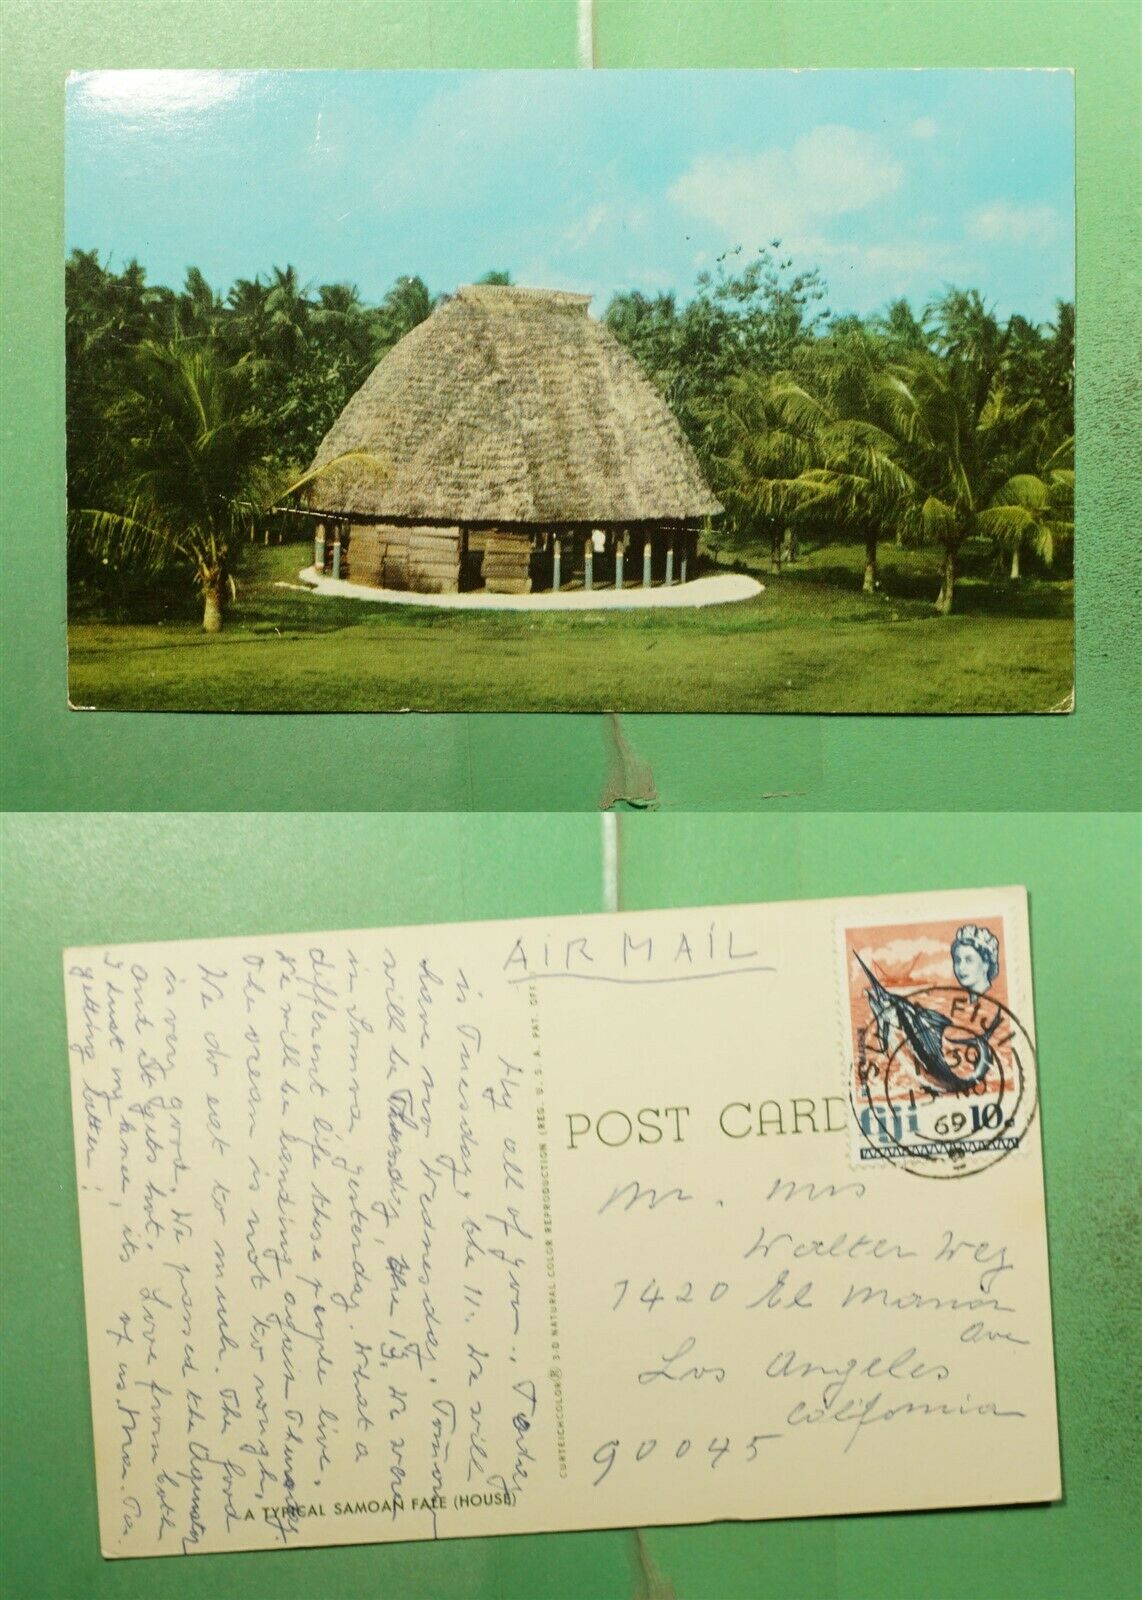 AIR MAIL
Hy all of you., Today
is Tuesday, the 11. We will
have no Wednesday. Tomorrow
will be Thursday, the 13. We were
in Samoa yesterday. What a
different life these people live.
We will be landing again Thursday.
The ocean is not to rough,
We do eat too much. The food
is very good. We passed the Equator
and It gets hot. Love from both
I hurt my knee, its of us.
getting better!
A TYPICAL SAMOAN FALE (HOUSE)
CURTEICHCOLOR® 3-D NATURAL COLOR REPRODUCTION (REG. U. S. A. PAT. OFF.
POST CARD
SUVA FIJI
13 NO
69
fiji 10c
Mr. Mrs
Walter Wey
7420 El Manor
Ave
Los Angeles
California
90045